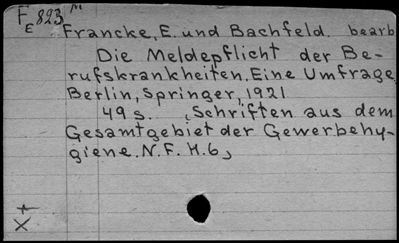 FE 823 M
Francke, E. und Bachfeld. bearb
Die Meldepflicht der Be-
rufskrankheiten. Eine Umfrage
Berlin, Springer, 1921
49 s. (Schriften aus dem
Gesamtgebiet der Gewerbehy-
giene. N.F. H.6)